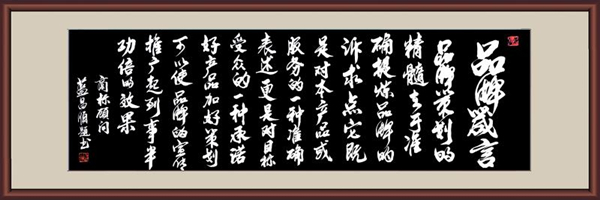 品牌箴言
品牌策划的
精髓在于准
确提炼品牌的
诉求点它既
是对本产品或
服务的一种准确
表述更是对目标
受众的一种承诺
好产品加好策划
可以使品牌的宣传
推广起到事半
功倍的效果
商标顾问
昌顺题书